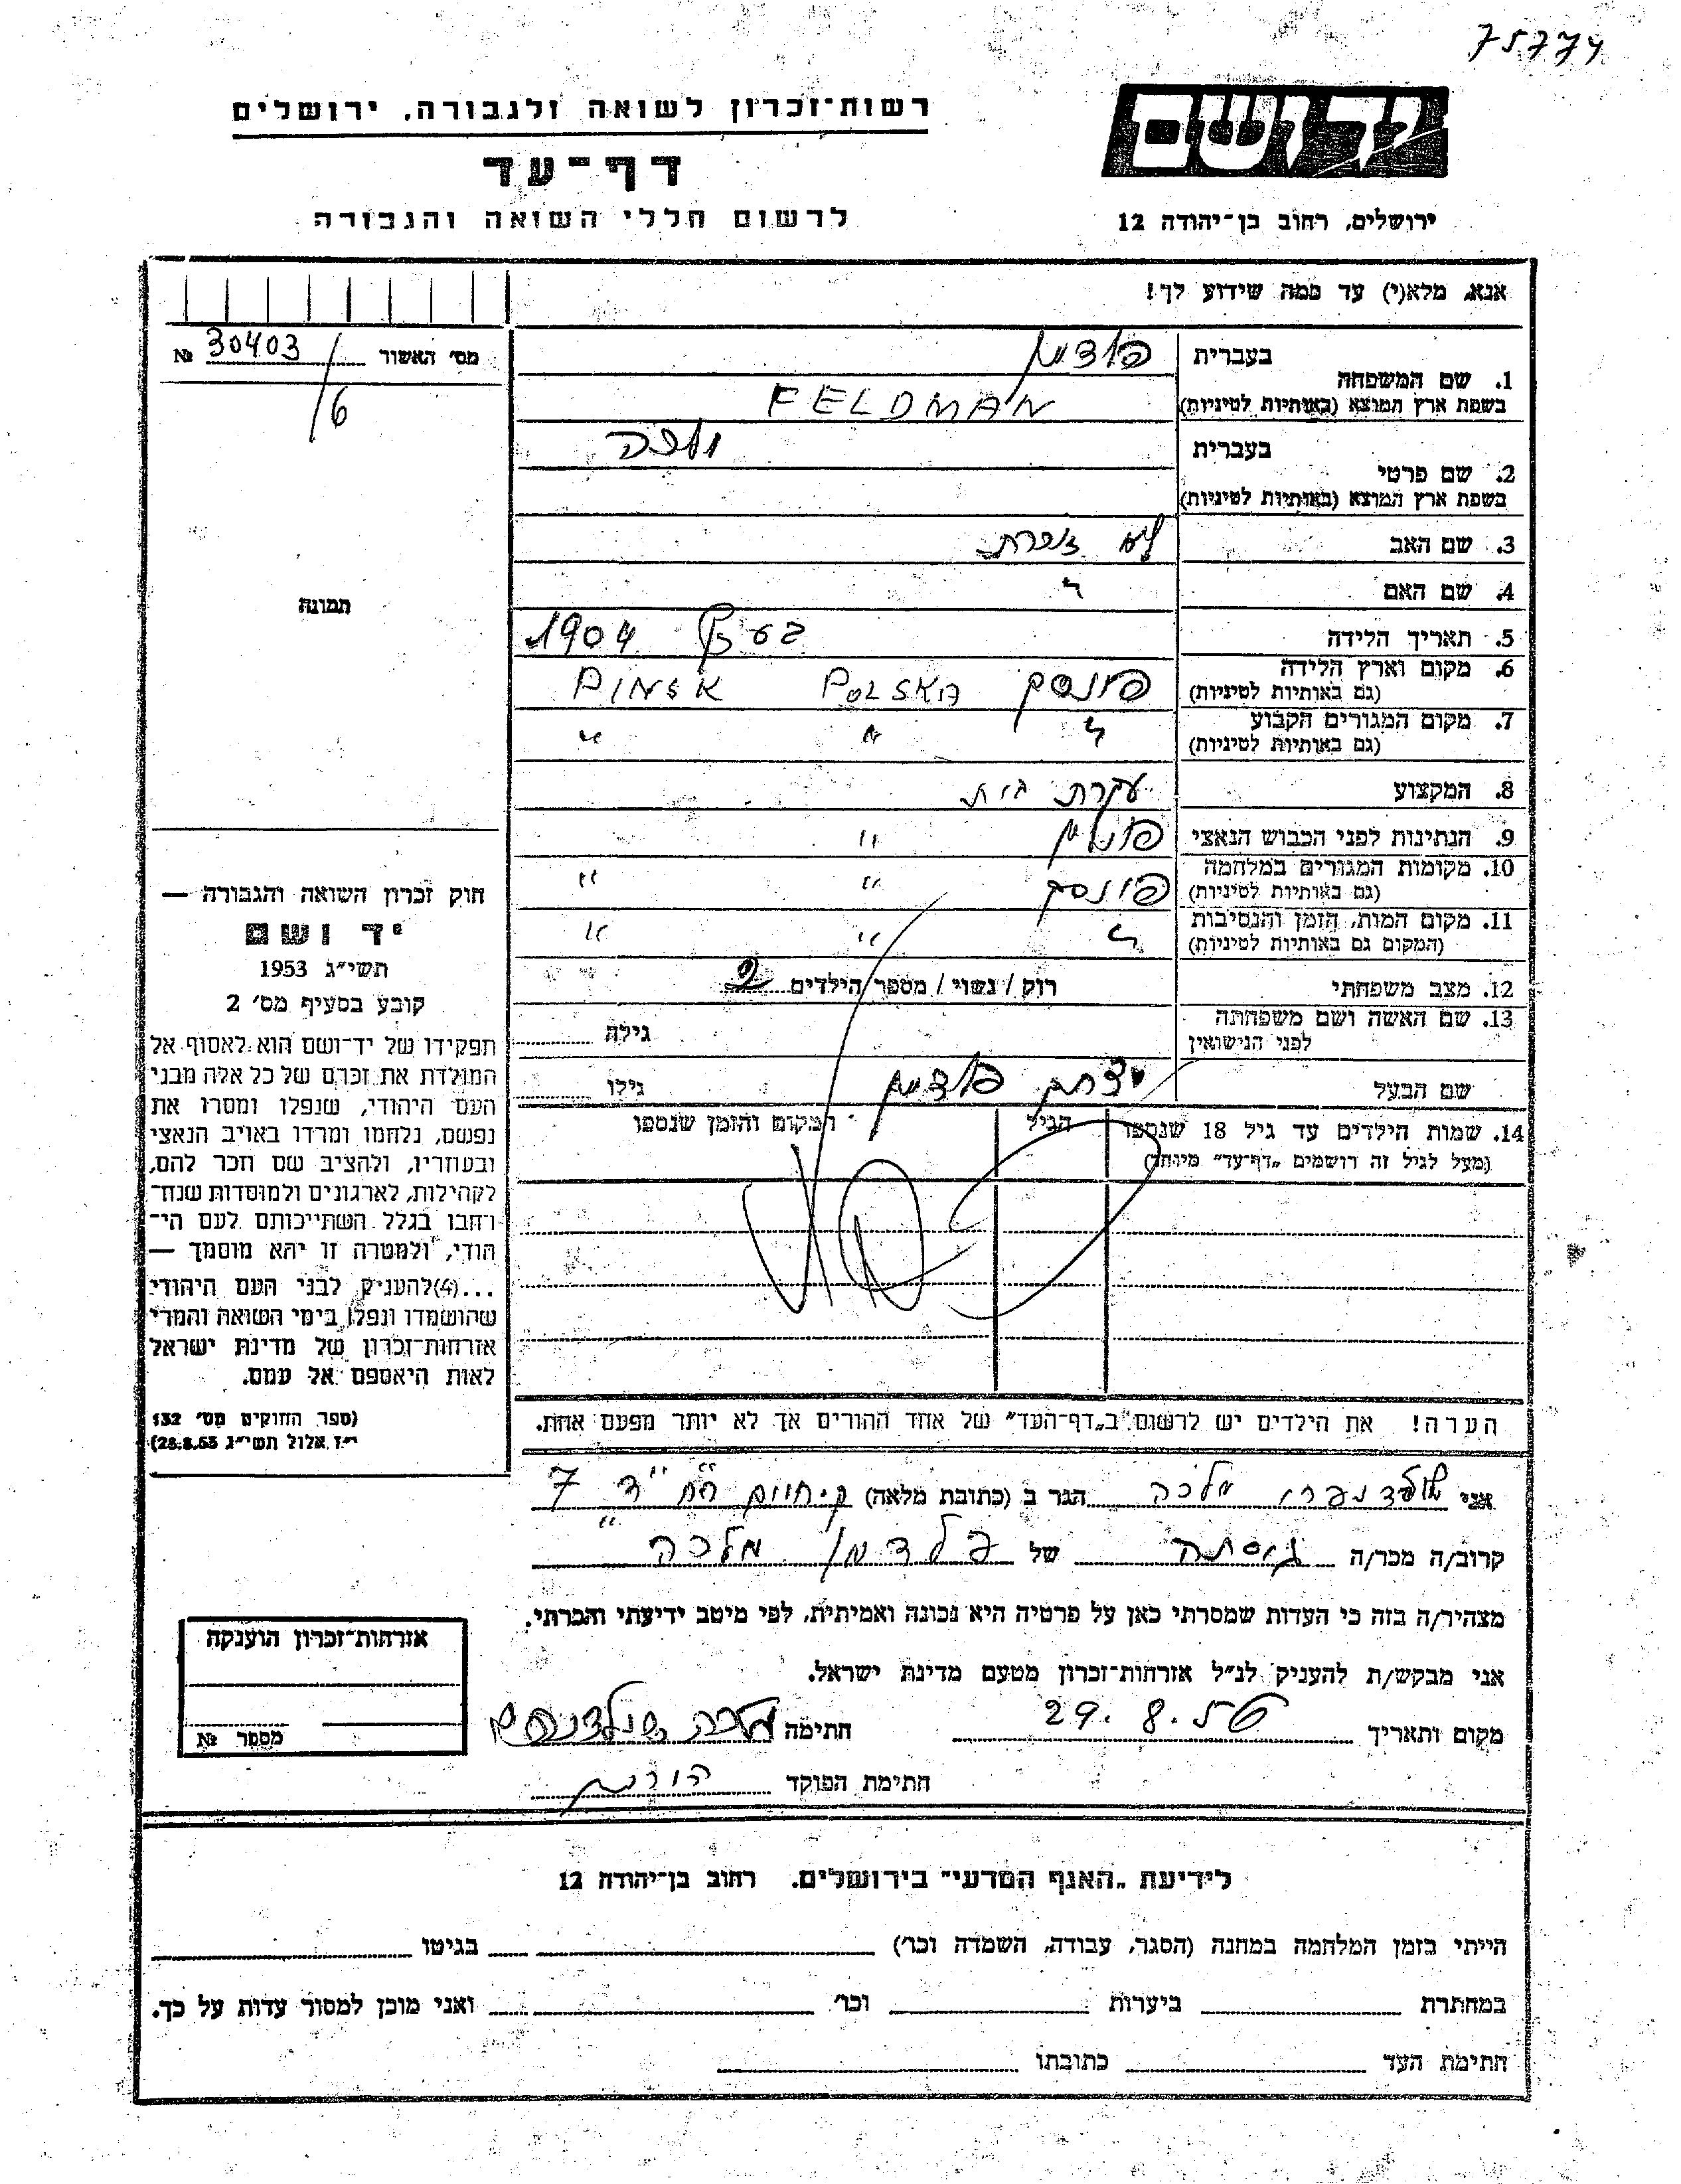 75774
רשות־זכרון לשואה ולגבורה, ירושלים
יד ושם
דף־עד
לרשום חללי השואה והגבורה
ירושלים, רחוב בן־יהודה 12
אנא, מלא(י) עד כמה שידוע לך!
מס׳ האשור 30403 №
/6
תמונה
1. שם המשפחה
בעברית פלדמן
בשפת ארץ המוצא (באותיות לטיניות) FELDMAN
2. שם פרטי
בעברית
בשפת ארץ המוצא (באותיות לטיניות)
3. שם האב לא זוכרת
4. שם האם "
5. תאריך הלידה 1904
6. מקום וארץ הלידה
(גם באותיות לטיניות) פינסק POLSKA PINSK
7. מקום המגורים הקבוע
(גם באותיות לטיניות) " " "
8. המקצוע עקרת בית
9. הנתינות לפני הכבוש הנאצי פולין "
10. מקומות המגורים במלחמה
(גם באותיות לטיניות) פינסק " "
11. מקום המות, הזמן והנסיבות
(המקום גם באותיות לטיניות) " " "
12. מצב משפחתי רוק / נשוי / מספר הילדים 2
13. שם האשה ושם משפחתה
לפני הנישואין גילה
שם הבעל יצחק פלדמן גילו
14. שמות הילדים עד גיל 18 שנספו הגיל המקום והזמן שנספו
(מעל לגיל זה רושמים „דף־עד״ מיוחד)
הערה! את הילדים יש לרשום ב„דף־העד״ של אחד ההורים אך לא יותר מפעם אחת.
חוק זכרון השואה והגבורה —
יד ושם
תשי״ג 1953
קובע בסעיף מס׳ 2
תפקידו של יד־ושם הוא לאסוף אל
המולדת את זכרם של כל אלה מבני
העם היהודי, שנפלו ומסרו את
נפשם, נלחמו ומרדו באויב הנאצי
ובעוזריו, ולהציב שם וזכר להם,
לקהילות, לארגונים ולמוסדות שנח־
רחבו בגלל השתייכותם לעם הי־
הודי, ולמטרה זו יהא מוסמך —
...(4)להעניק לבני העם היהודי
שהושמדו ונפלו בימי השואה והמרי
אזרחות־זכרון של מדינת ישראל
לאות היאספם אל עמם.
(ספר החוקים מס׳ 132
י״ז אלול תשי״ג 28.8.53)
אני מלכה הגר ב (כתובת מלאה) ק. חיים 7
קרוב/ה מכר/ה גיסתה של פלדמן מלכה
מצהיר/ה בזה כי העדות שמסרתי כאן על פרטיה היא נכונה ואמיתית, לפי מיטב ידיעתי והכרתי.
אני מבקש/ת להעניק לנ״ל אזרחות־זכרון מטעם מדינת ישראל.
מקום ותאריך 29.8.56 חתימה מלכה
חתימת הפוקד
אזרחות־זכרון הוענקה
מספר №
לידיעת „האגף המדעי״ בירושלים. רחוב בן־יהודה 12
הייתי בזמן המלחמה במחנה (הסגר, עבודה, השמדה וכו׳) בגיטו
במחתרת ביערות וכו׳ ואני מוכן למסור עדות על כך.
חתימת העד כתובתו